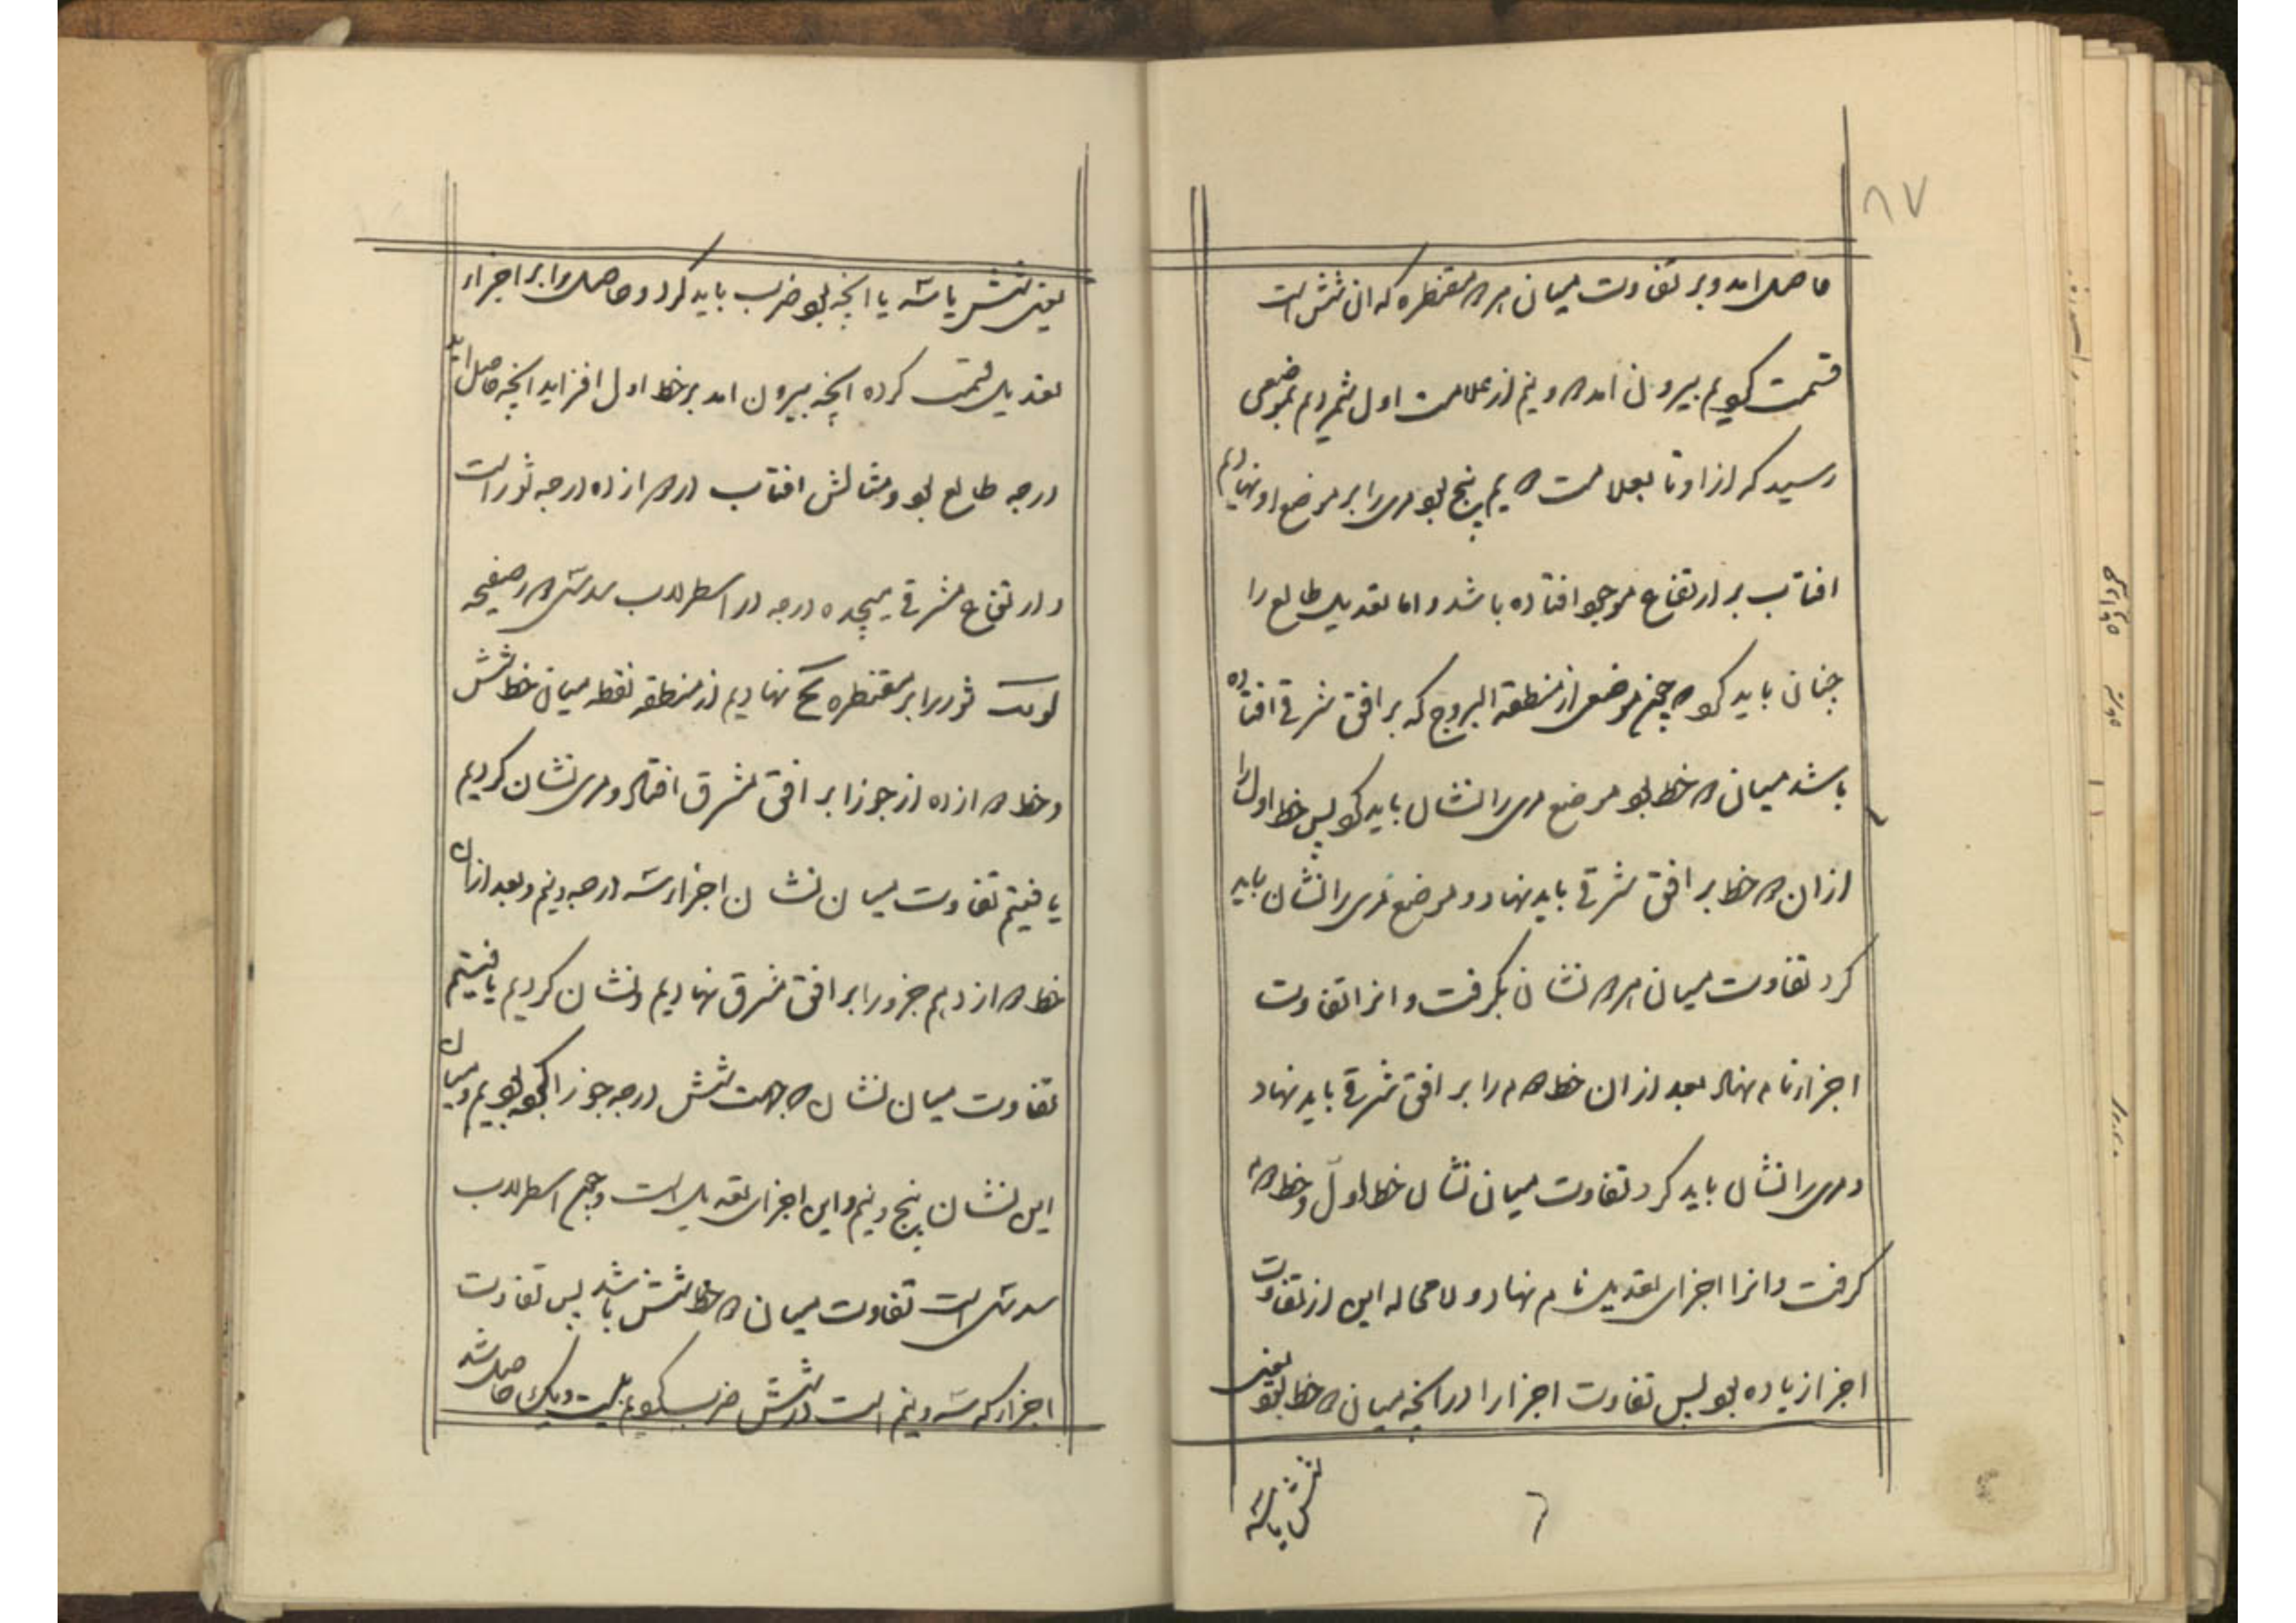 ۸۷
حاصل امد و بر تفاوت میان هر دو مقنطره که ان شش است
قسمت کردیم بیرون امد دو نیم از علامت اول شمردیم بموضعی
رسید که از او تا بعلامت دویم پنج بود مری را بر موضع او نهادیم
افتاب بر ارتفاع موجود افتاده باشد و اما تعدیل طالع را
چنان باید کرد که چون موضعی از منطقة البروج که بر افق شرقی افتاده
باشد میان دو خط بود موضع مری را نشان باید کرد پس خط اول را
ازان دو خط بر افق شرقی باید نهاد و موضع مری را نشان باید
کرد تفاوت میان هر دو نشان بگرفت و انرا تفاوت
اجزا نام نهاد بعد ازان خط دوم را بر افق شرقی باید نهاد
و مری را نشان باید کرد تفاوت میان نشان خط اول و خط دوم
گرفت و انرا اجزای تعدیل نام نهاد و لا محاله این از تفاوت
اجزا زیاده بود پس تفاوت اجزا را در انچه میان دو خط بود یعنی
شش یا سه
۶
یعنی شش یا سه یا انچه بود ضرب باید کرد و حاصل را بر اجزاء
تعدیل قسمت کرده انچه بیرون امد بر خط اول افزاید انچه حاصل اید
درجه طالع بود و مثالش افتاب در دوازده درجه ثور است
و ارتفاع شرقی هیجده درجه در اسطرلاب سدسی در صفیحه
لو یب ثور را بر مقنطره یح نهادیم از منطقه نقطه میان خط شش
و خط دوازده از جوزا بر افق مشرق افتاد و مری نشان کردیم
یافتیم تفاوت میان نشان اجزا سه درجه و نیم و بعد ازان
خط دوازدهم جزو را بر افق مشرق نهادیم و نشان کردیم یافتیم
تفاوت میان نشان که جهت شش درجه جوزا کرده بودیم و میان
این نشان پنج و نیم و این اجزای تعدیل است و چون اسطرلاب
سدسی است تفاوت میان دو خط شش باشد پس تفاوت
اجزا که سه و نیم است در شش ضرب کردیم بیست و یک حاصل شد